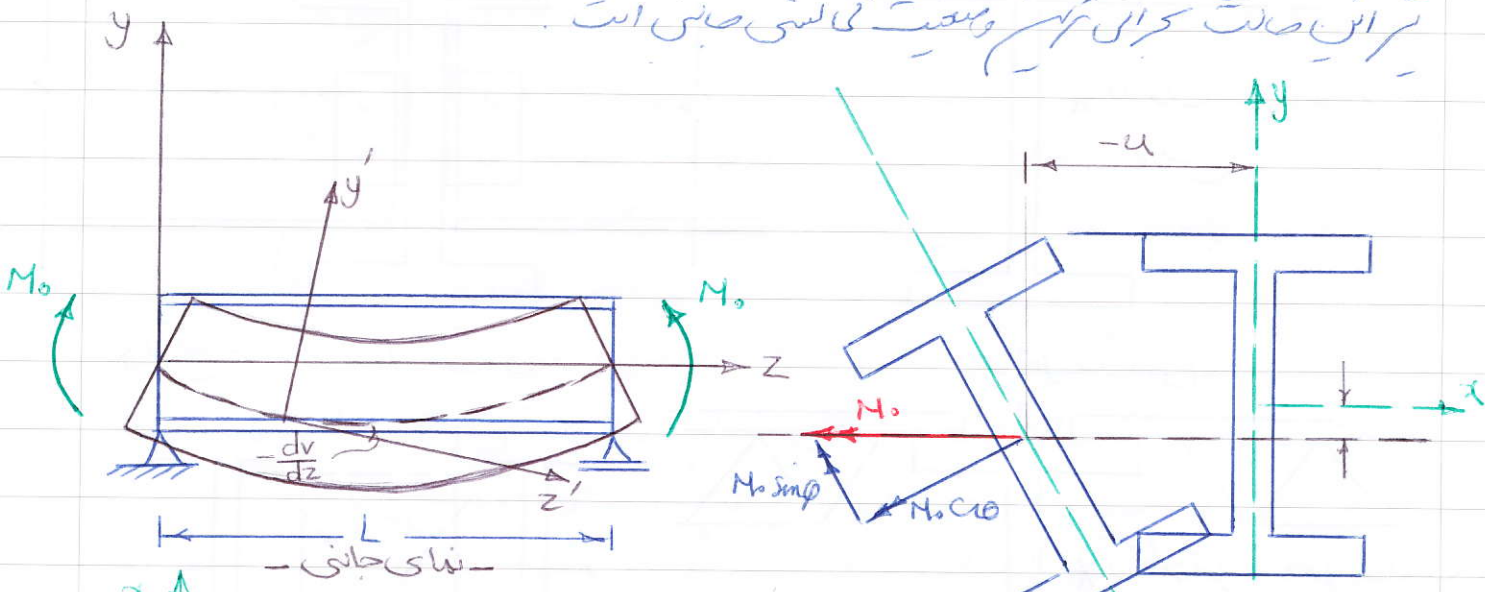 در این حالت بحرانی ترین وضعیت کمانش جانبی است.
y
y'
M₀
M₀
z
-dv/dz
z'
L
-نمای جانبی-
y
-u
x
M₀
M₀ sinφ
M₀ Cosφ